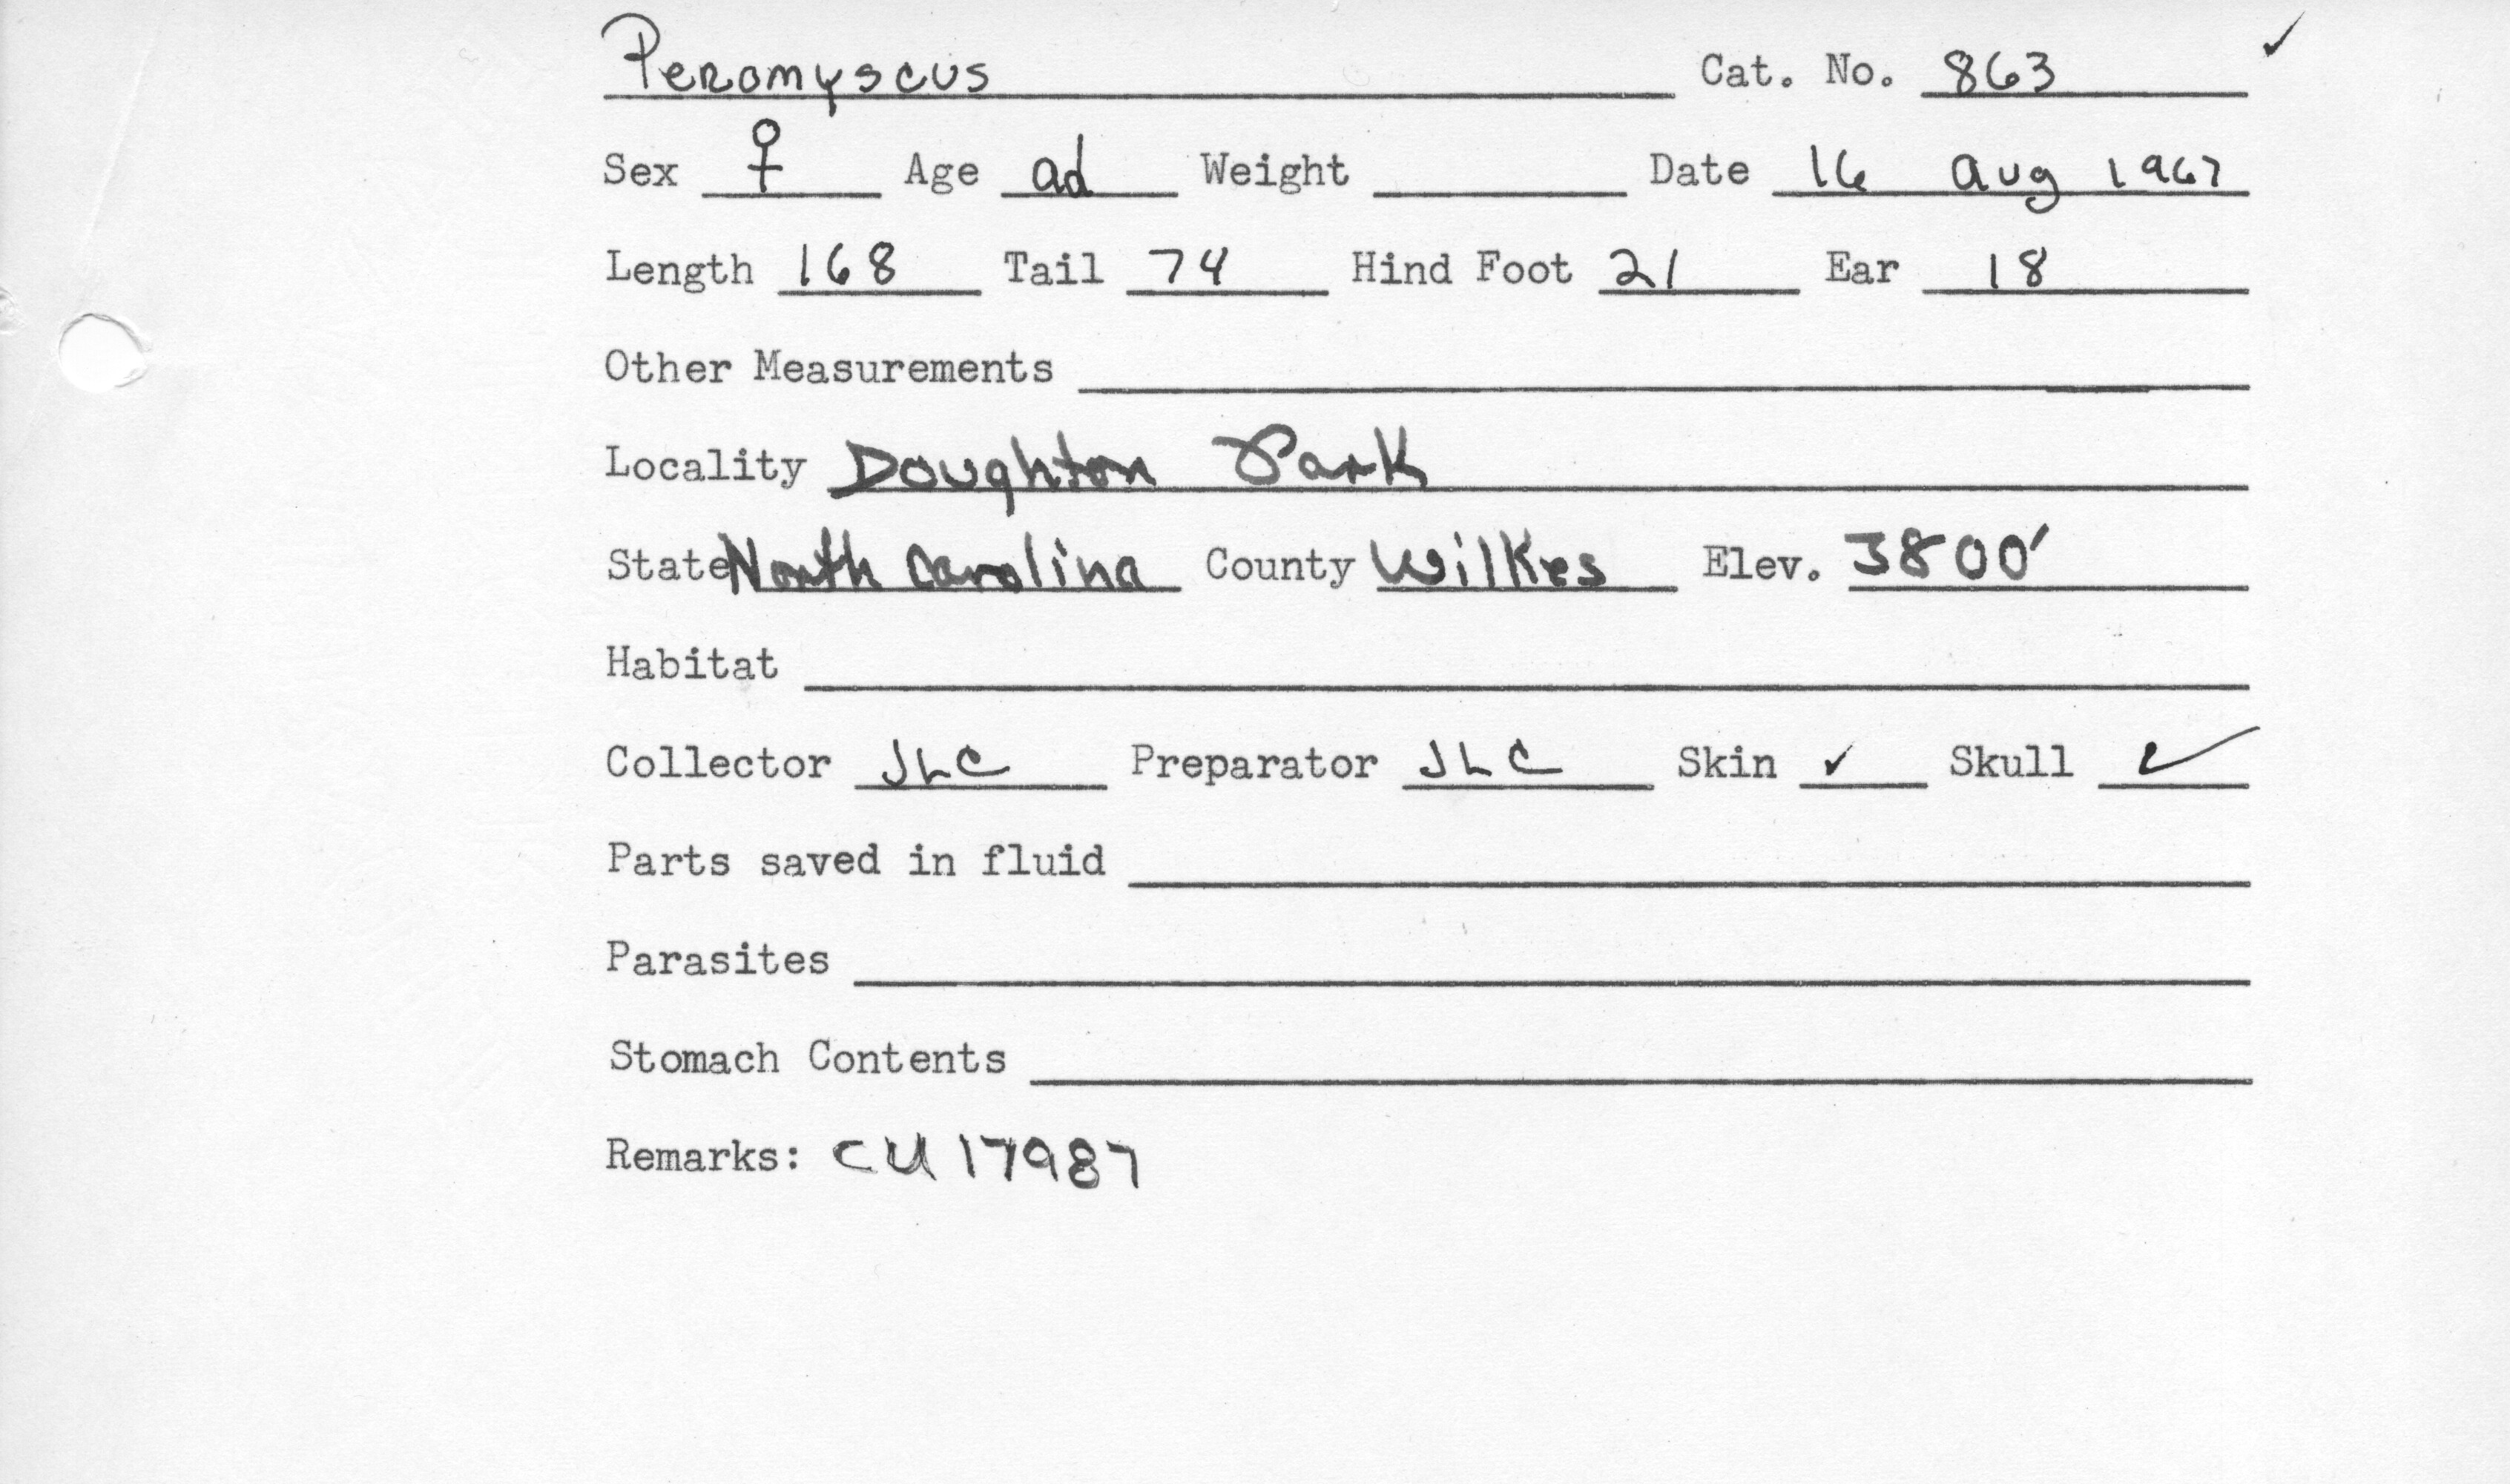 Peromyscus Cat. No. 863 ✓
Sex ♀ Age ad Weight Date 16 Aug 1967
Length 168 Tail 74 Hind Foot 21 Ear 18
Other Measurements
Locality Doughton Park
State North Carolina County Wilkes Elev. 3800'
Habitat
Collector JLC Preparator JLC Skin ✓ Skull ✓
Parts saved in fluid
Parasites
Stomach Contents
Remarks: CU 17987